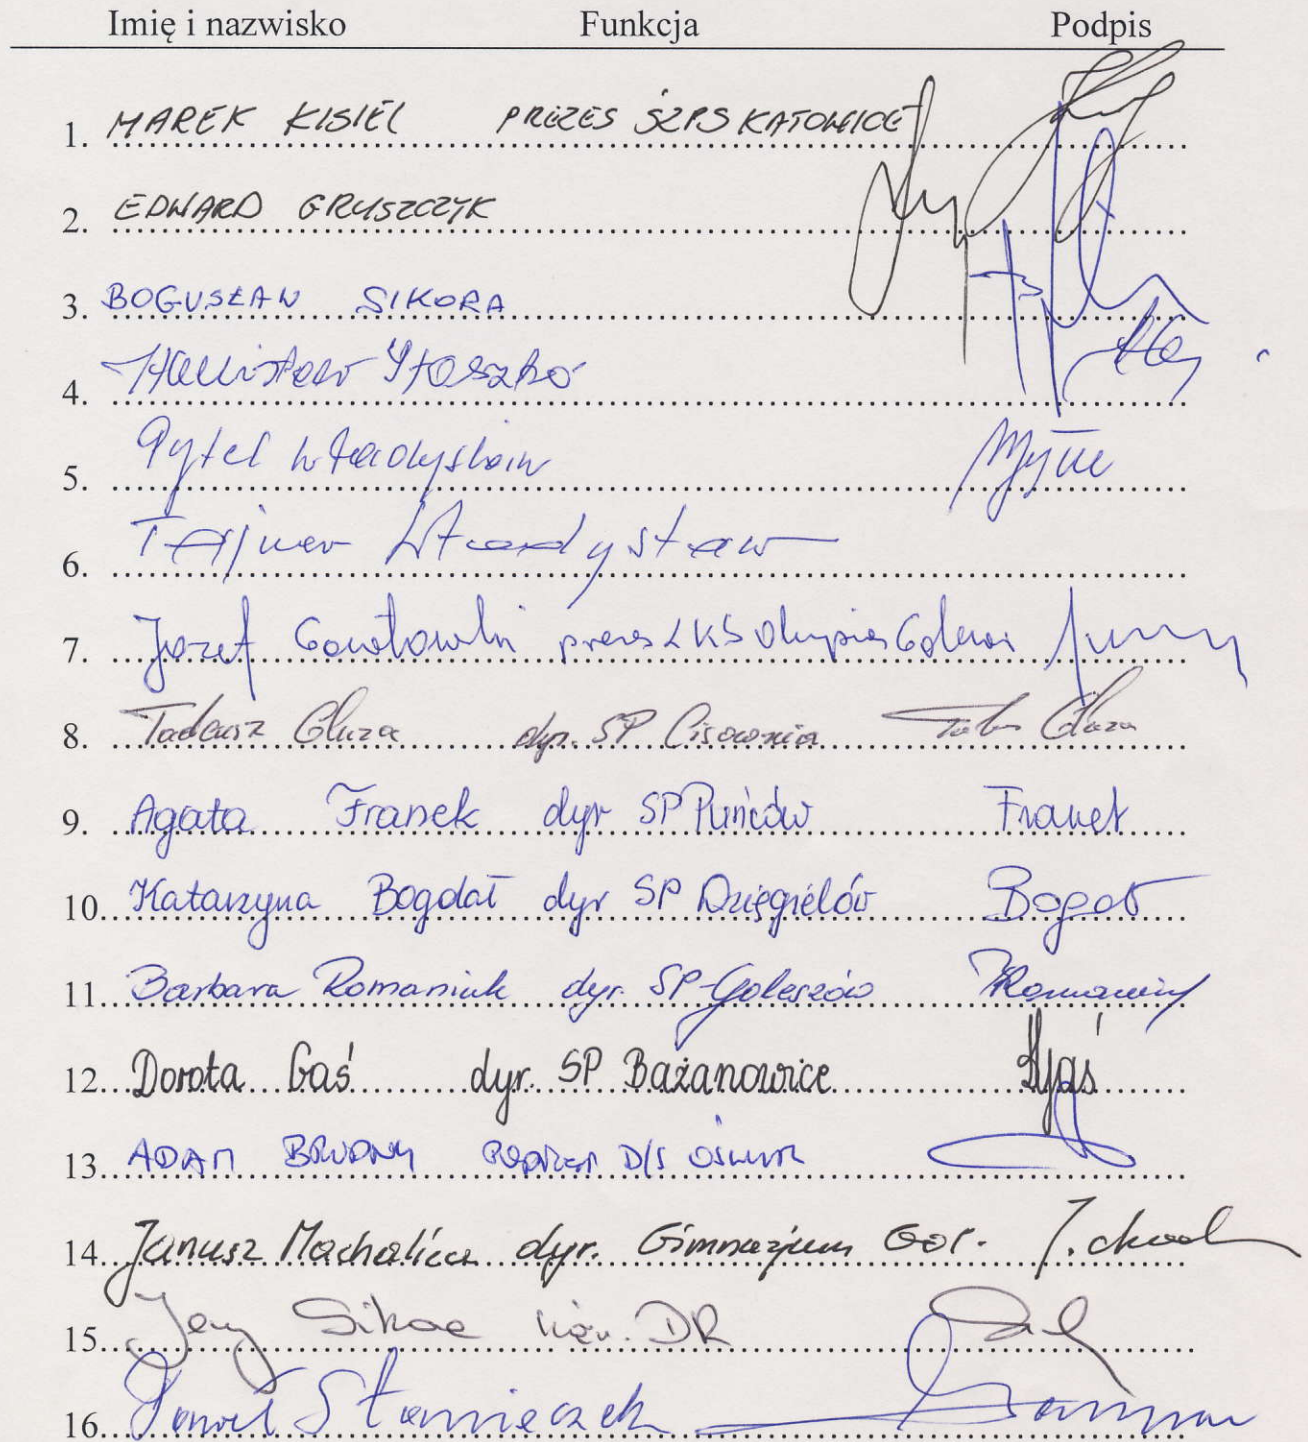 Imię i nazwisko Funkcja Podpis
1. MAREK KISIEL PREZES ŚZPS KATOWICE
2. EDWARD GRUSZCZYK
3. BOGUSŁAW SIKORA
4. Stanisław
5. Pytel Władysław
6. Tajner Władysław
7. Józef prezes LKS Olympia Goleszów
8. Tadeusz Gluza dyr. SP Cisownica Gluza
9. Agata Franek dyr SP Puńców Franek
10. Katarzyna Bogdał dyr SP Dzięgielów
11. Barbara Romaniuk dyr. SP-Goleszów Romaniuk
12. Dorota Gaś dyr. SP Bażanowice
13. ADAM BRUDNY D/S
14. Janusz Machalica dyr. Gimnazjum Gol.
15. Jerzy DR
16. Paweł Stanieczek